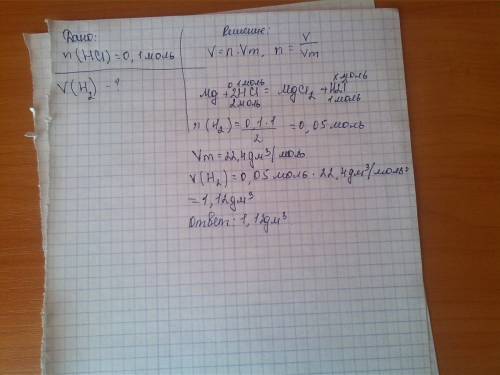 Дано:
n(HCl)=0,1моль
V(H2) - ?
Решение:
V=n·Vm, n= V/Vm
0,1моль x моль
Mg+2HCl=MgCl2+H2↑
2моль 1моль
n(H2)=0,1·1/2=0,05моль
Vm=22,4дм³/моль
V(H2)=0,05моль·22,4дм³/моль=
=1,12дм³
Ответ: 1,12дм³